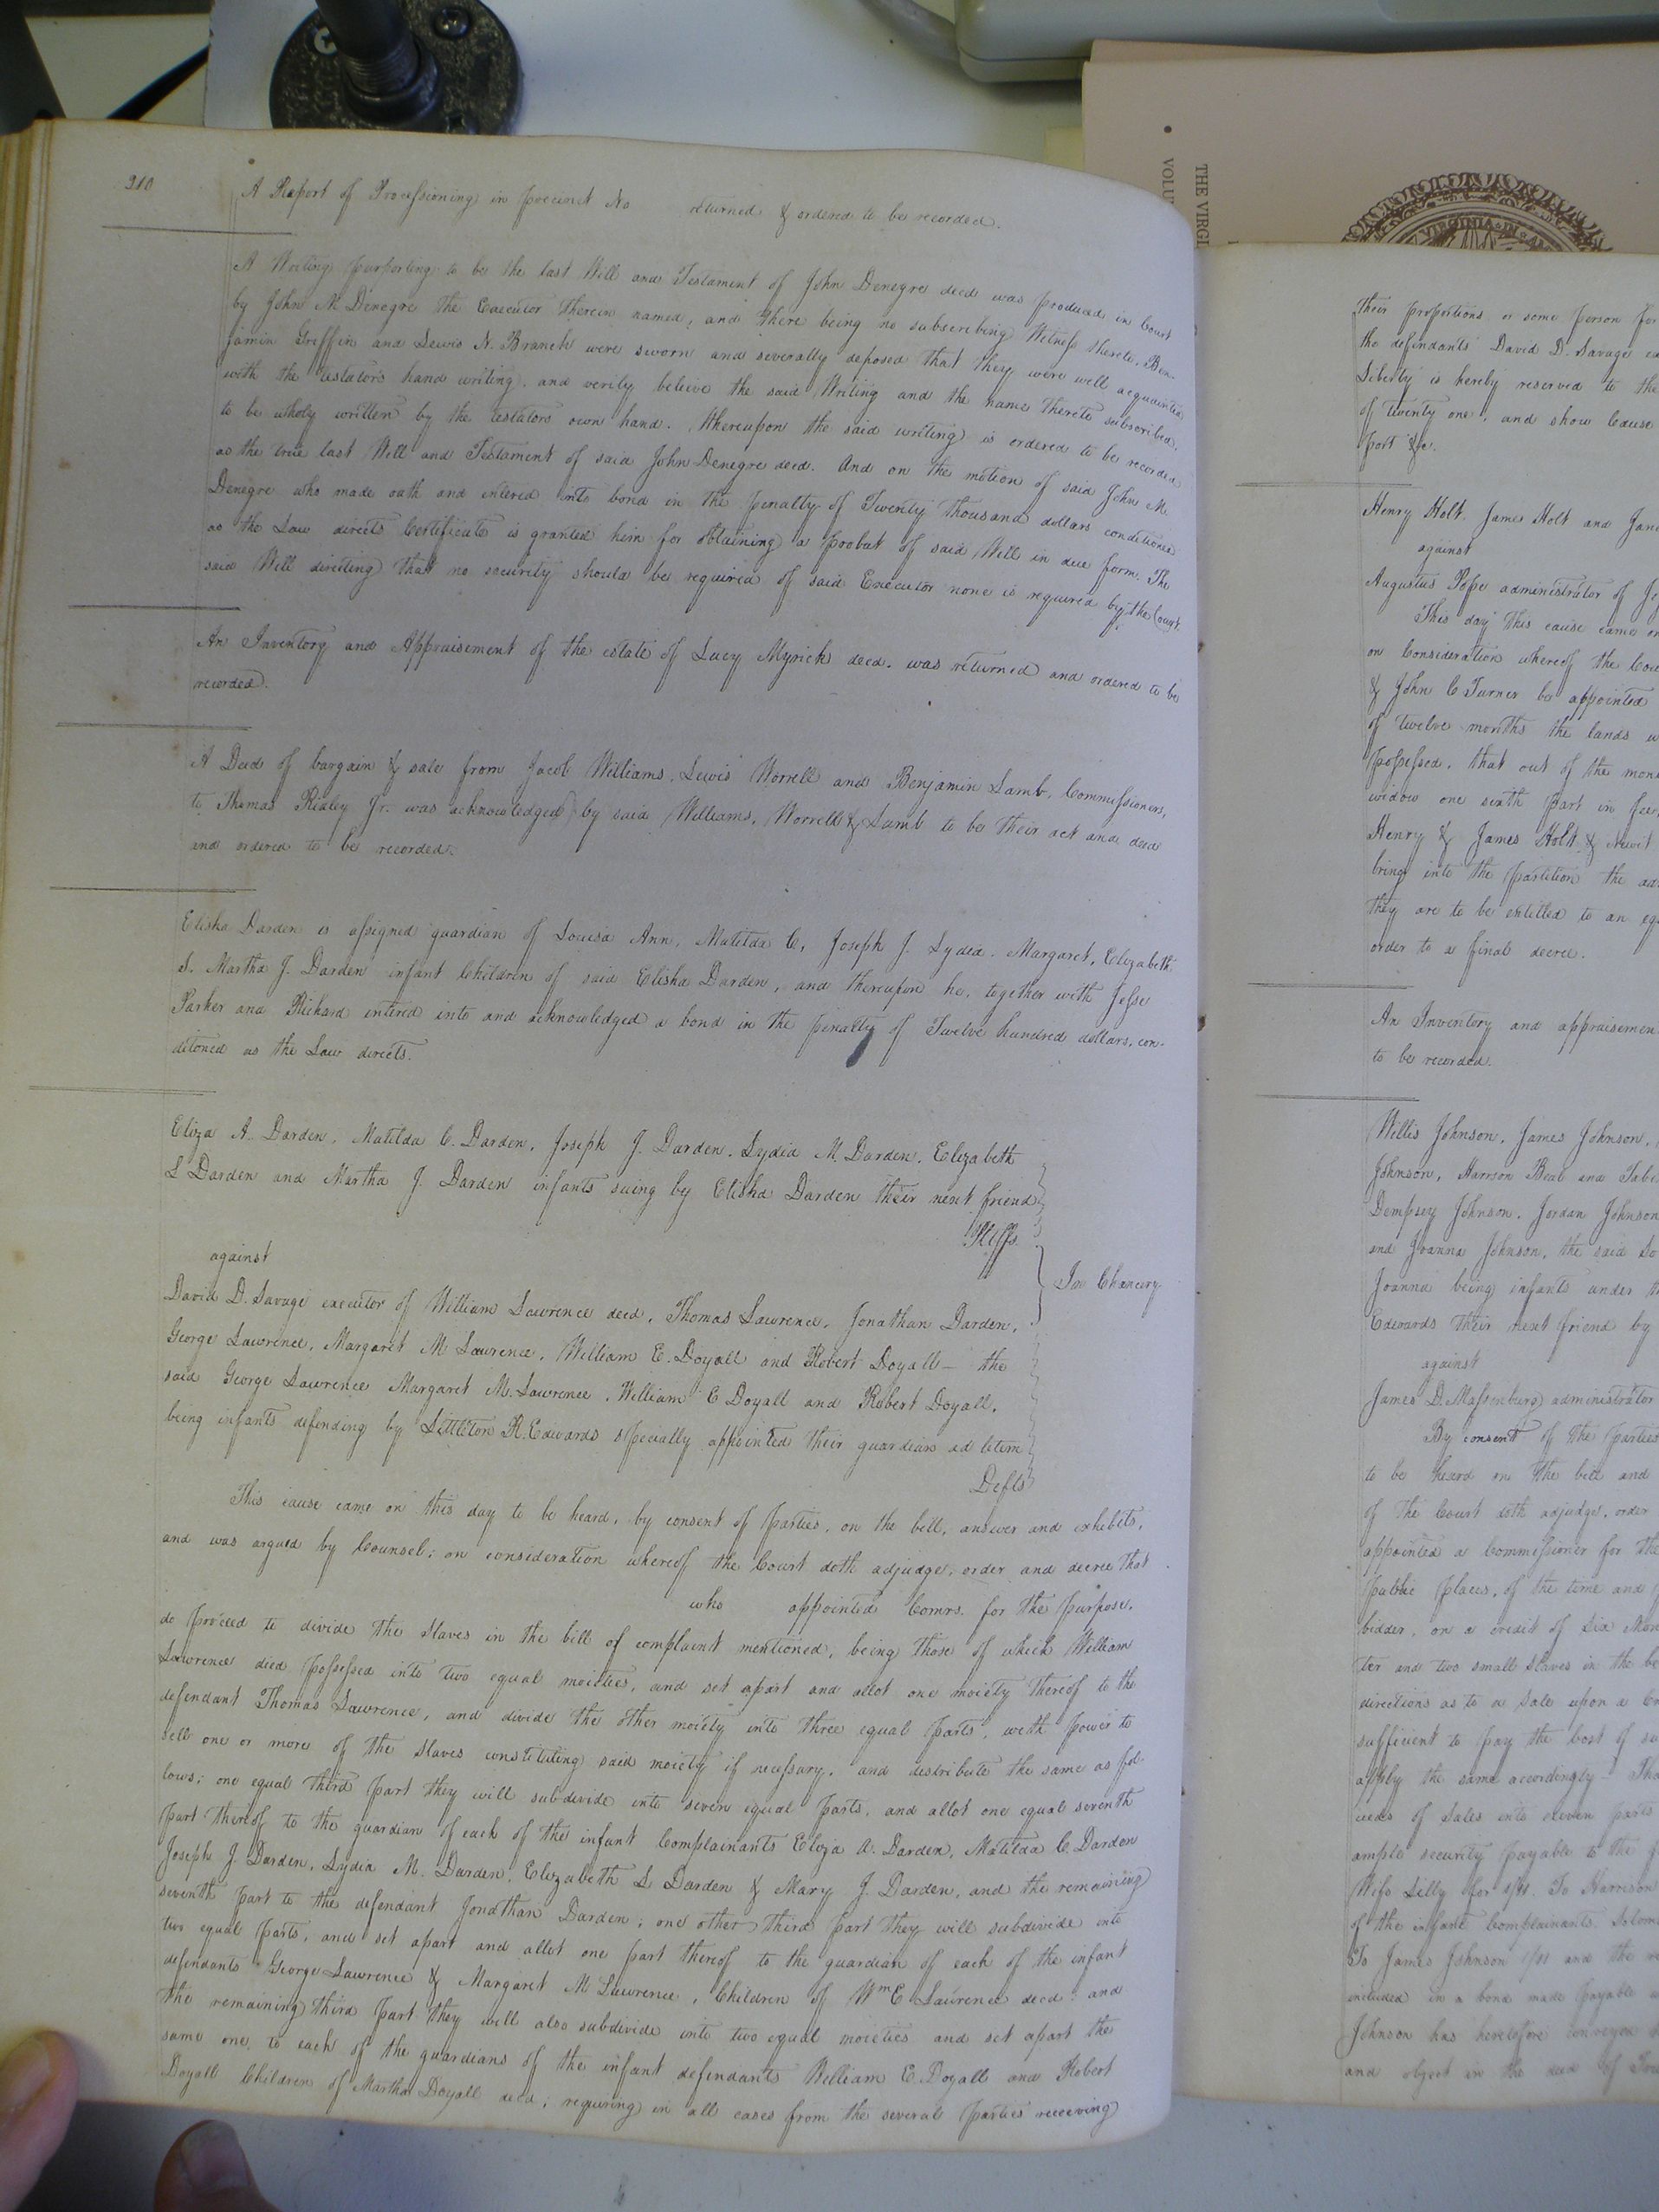 210
A Report of Processioning in precinct No returned & ordered to be recorded.
A Writing purporting to be the last Will and Testament of John Denegre decd was produced in Court
by John M Denegre the Executor therein named, and there being no subscribing Witness thereto, Ben-
jamin Griffin and Lewis N. Branch were sworn and severally deposed that they were well acquainted
with the testators hand writing, and verily believe the said Writing and the name thereto subscribed,
to be wholy written by the testators own hand. Whereupon the said writing is ordered to be recorded
as the true last Will and Testament of said John Denegre decd. And on the motion of said John M.
Denegre who made oath and entered into bond in the penalty of Twenty thousand dollars conditioned
as the Law directs Certificate is granted him for obtaining a probat of said Will in due form. The
said Will directing that no security should be required of said Executor none is required by the Court.
An Inventory and Appraisement of the estate of Lucy Myrick decd. was returned and ordered to be
recorded.
A Deed of bargain & sale from Jacob Williams, Lewis Worrell and Benjamin Lamb, Commissioners,
to Thomas Ridley Jr. was acknowledged by said Williams, Worrell & Lamb to be their act and deed
and ordered to be recorded.
Elisha Darden is assigned guardian of Louisa Ann, Matilda C, Joseph J. Lydia. Margaret, Elizabeth
S. Martha J. Darden infant Children of said Elisha Darden, and thereupon he, together with Jesse
Parker and Richard entered into and acknowledged a bond in the penalty of Twelve hundred dollars, con-
ditoned as the Law directs.
Eliza A. Darden, Matilda C. Darden, Joseph J. Darden, Lydia M. Darden, Elizabeth
S Darden and Martha J. Darden infants suing by Elisha Darden their next friend
Pltffs.
against
In Chancery
David D. Savage executor of William Lawrence decd, Thomas Lawrence, Jonathan Darden,
George Lawrence, Margaret M Lawrence, William E. Doyall and Robert Doyall — the
said George Lawrence Margaret M. Lawrence, William E Doyall and Robert Doyall,
being infants defending by Littleton R. Edwards specially appointed their guardian ad litem
Defts
This cause came on this day to be heard, by consent of parties, on the bill, answer and exhibits,
and was argued by Counsel; on consideration whereof the Court doth adjudge, order and decree that
who appointed Comrs. for the purpose,
do proceed to divide the slaves in the bill of complaint mentioned, being those of which William
Lawrence died possessed into two equal moieties, and set apart and allot one moiety thereof to the
defendant Thomas Lawrence, and divide the other moiety into three equal parts, with power to
sell one or more of the slaves constituting said moiety if necessary, and distribute the same as fol-
lows; one equal third part they will subdivide into seven equal parts, and allot one equal seventh
part thereof to the guardian of each of the infant Complainants Eliza A. Darden, Matilda C. Darden
Joseph J. Darden, Lydia M. Darden, Elizabeth S Darden & Mary J. Darden, and the remaining
seventh part to the defendant Jonathan Darden; one other third part they will subdivide into
two equal parts, and set apart and allot one part thereof to the guardian of each of the infant
defendants George Lawrence & Margaret M Lawrence, Children of Wm E Lawrence decd: and
the remaining third part they will also subdivide into two equal moieties and set apart the
same one, to each of the guardians of the infant defendants William E. Doyall and Robert
Doyall Children of Martha Doyall decd; requiring in all cases from the several parties receiving
THE VIRGI
VOLU
VIRGINIA IN
their proportions or some person for
the defendants David D. Savage
Liberty is hereby reserved to the
of twenty one, and show Cause
port &c.
Henry Holt, James Holt and
against
Augustus Pope administrator of
This day this cause came on
on Consideration whereof the Cou
& John C Turner be appointed
of twelve months the lands
possessed, that out of the mon
widow one sixth part in fee
Henry & James Holt &
bring into the partition the
they are to be entitled to an eq
order to a final decree.
An Inventory and appraisemen
to be recorded.
Willis Johnson, James Johnson,
Johnson, Harrison Beal and
Dempsey Johnson, Jordan Johnson
and Joanna Johnson, the said
Joanna being infants under
Edwards their next friend by
against
James D. Massenburg administrator
By consent of the parties
to be heard on the bill and
of the Court doth adjudge, order
appointed a Commissioner for the
public places, of the time and
bidder, on a credit of six Mon
ter and two small slaves in the
directions as to a sale upon a
sufficient to pay the Cost of
apply the same accordingly —
ceeds of sales into eleven parts
ample security payable to the
Wife Silly for 1/11. To Harrison
of the infant Complainants
To James Johnson 1/11 and the
included in a bond made payable
Johnson has heretofore conveyed
and object in the deed of